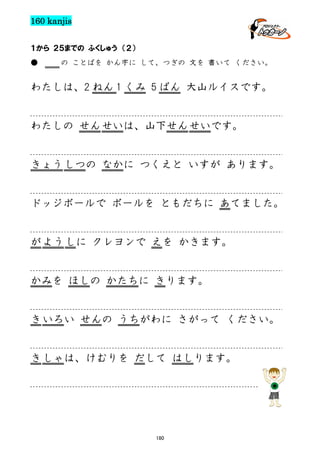 160 kanjis
１から ２５までの ふくしゅう （２）
● ＿＿の ことばを かん字に して、つぎの 文を 書いて ください。
わたしは、２ねん１くみ ５ばん 大山ルイスです。
わたしの せんせいは、山下せんせいです。
きょうしつの なかに つくえと いすが あります。
ドッジボールで ボールを ともだちに あてました。
がようしに クレヨンで えを かきます。
かみを ほしの かたちに きります。
きいろい せんの うちがわに さがって ください。
きしゃは、けむりを だして はしります。
180